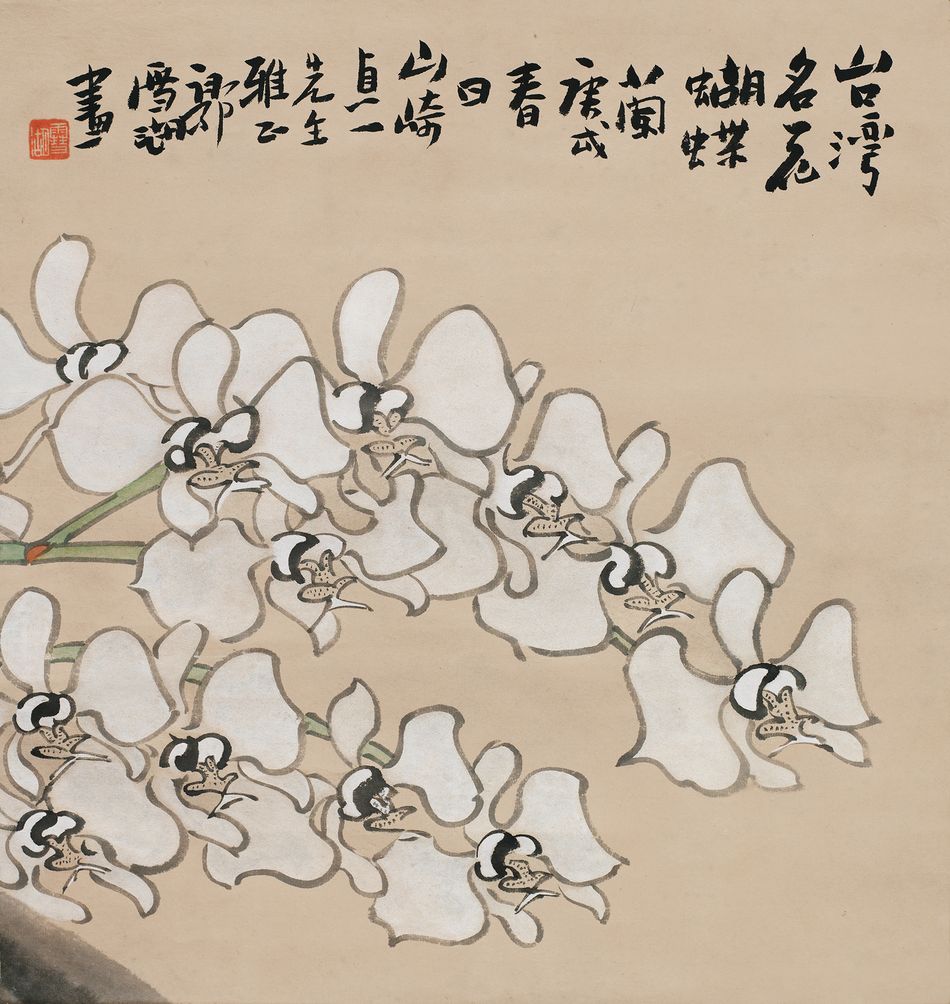 台湾
名花
蝴蝶
蘭
庚戌
春
日
山崎
貞一
先生
雅正
郭
雪湖
畫
雪湖